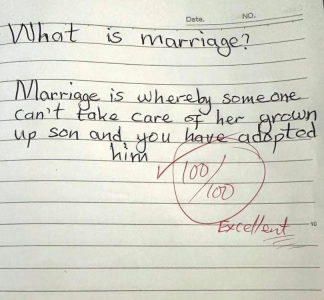 Date. NO.
What is marriage?
Marriage is whereby someone
can't take care of her grown
up son and you have adopted
him
100/
100
Excellent